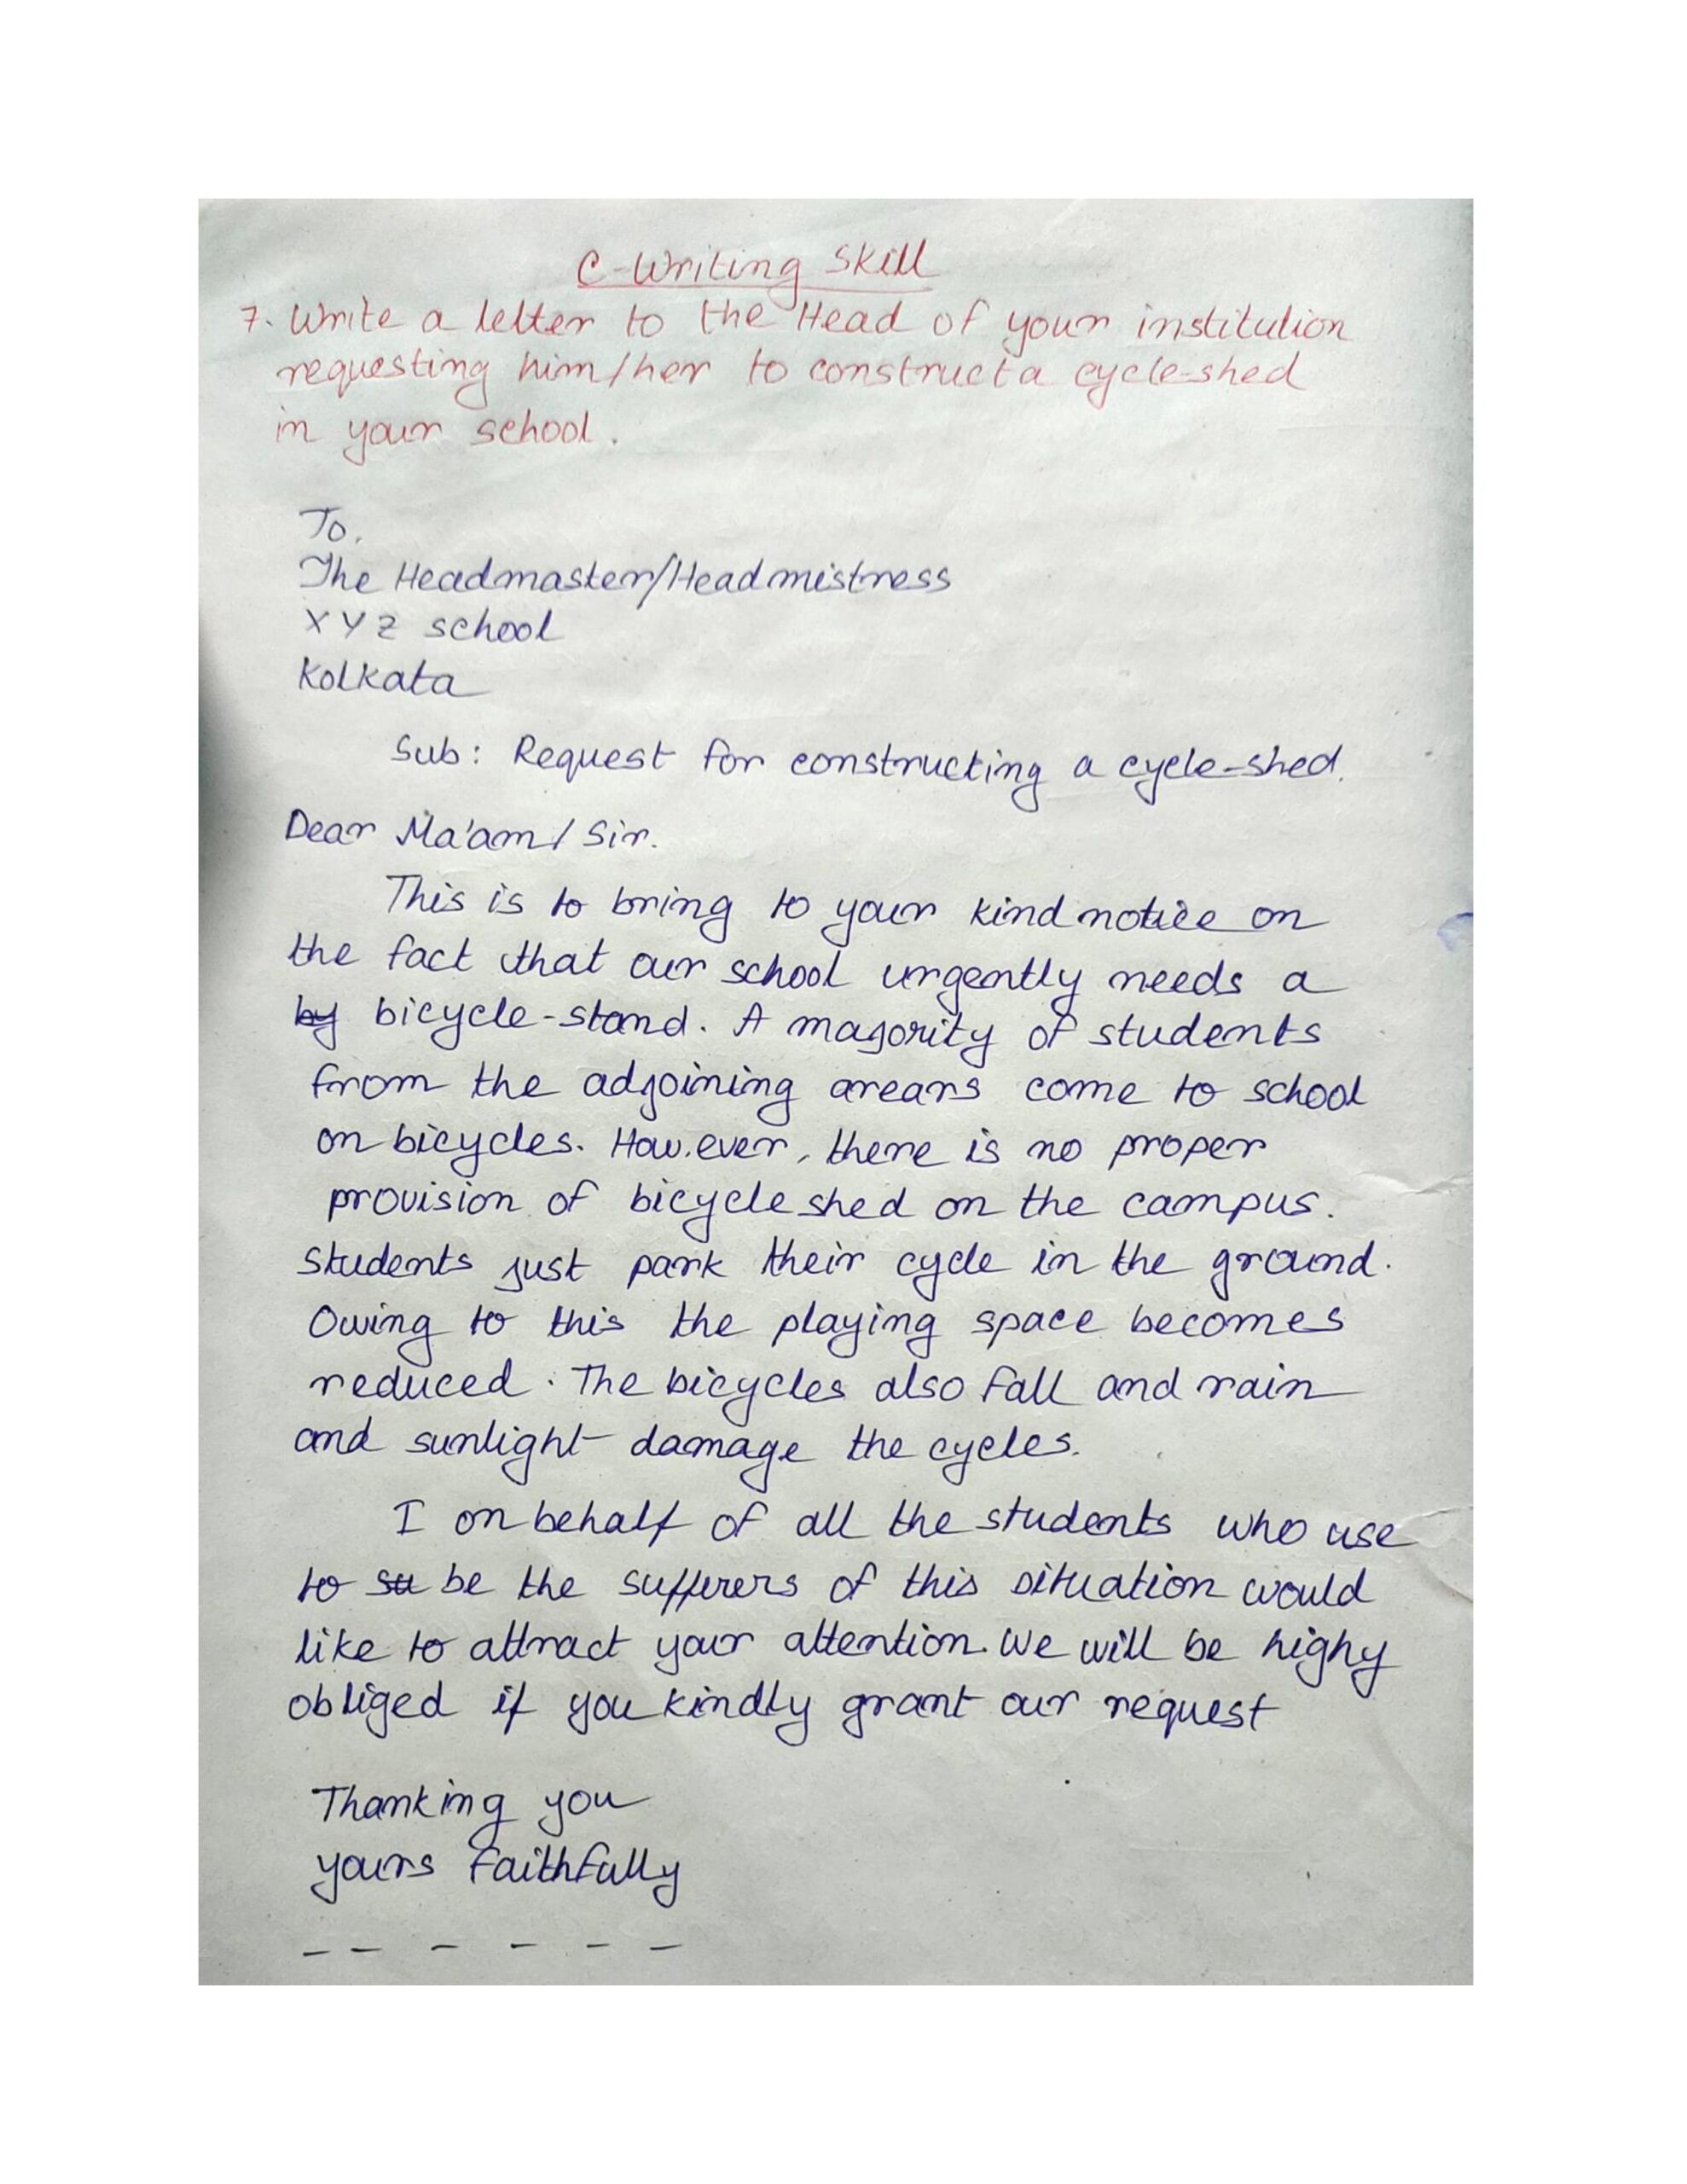 C-Writing Skill
7. Write a letter to the Head of your institution
requesting him/her to construct a cycle-shed
in your school.
To,
The Headmaster/Headmistress
XYZ school
Kolkata
Sub: Request for constructing a cycle-shed.
Dear Ma'am/Sir.
This is to bring to your kind notice on
the fact that our school urgently needs a
by bicycle-stand. A majority of students
from the adjoining arears come to school
on bicycles. However, there is no proper
provision of bicycle shed on the campus.
Students just park their cycle in the ground.
Owing to this the playing space becomes
reduced. The bicycles also fall and rain
and sunlight damage the cycles.
I on behalf of all the students who use
to su be the sufferers of this situation would
like to attract your attention. We will be highy
obliged if you kindly grant our request
Thanking you
yours faithfully
- - - - - -